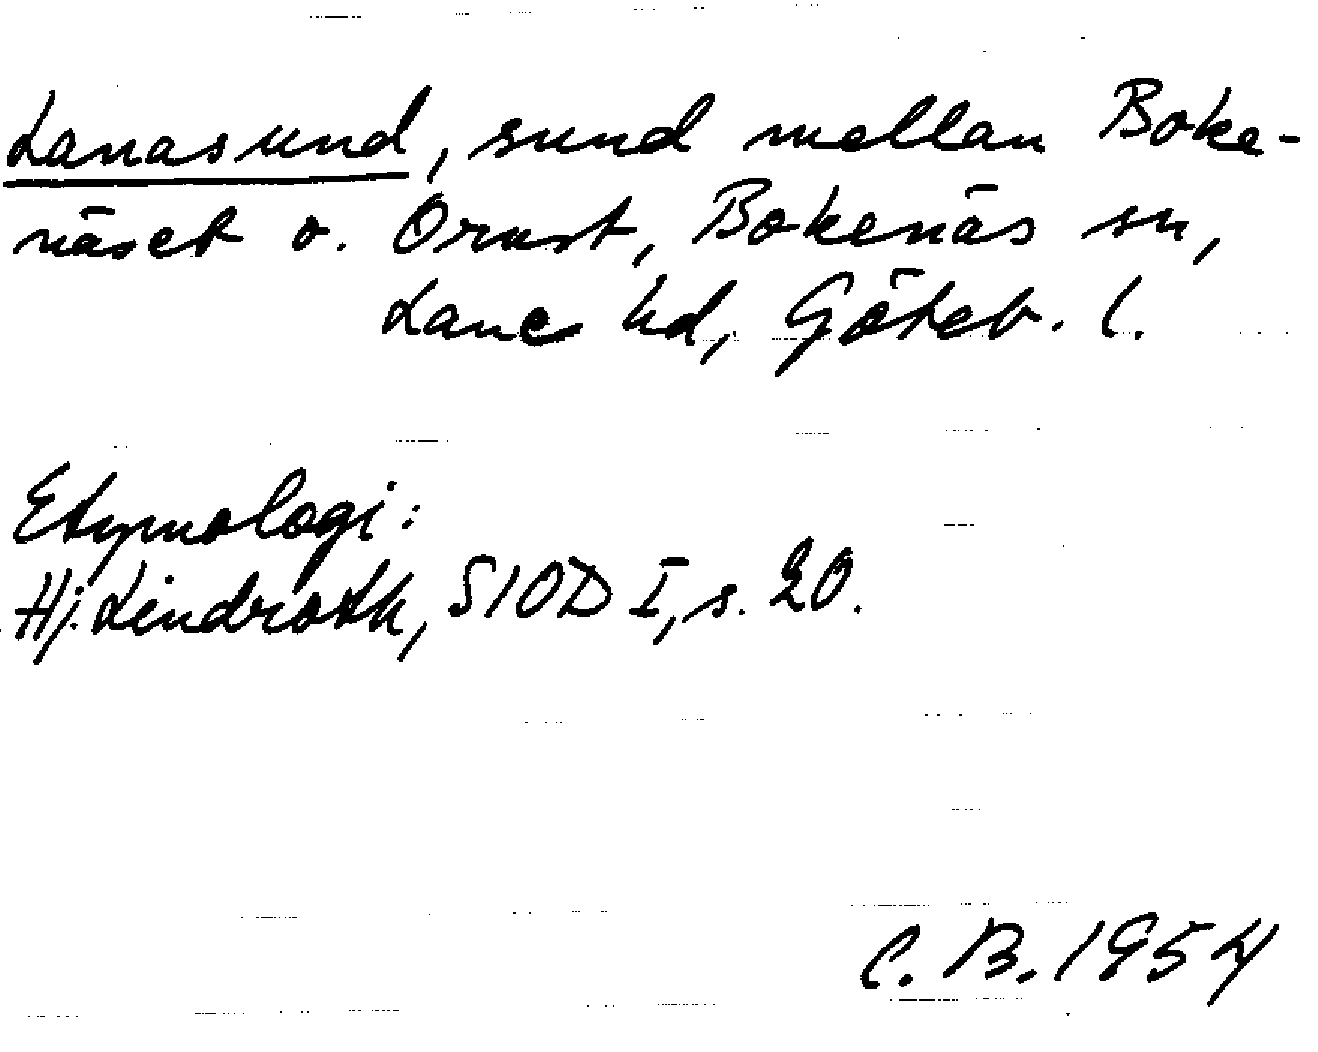 Lanasund, sund mellan Boke-
näset o. Orust, Bokenäs sn,
Lane hd, Göteb. l.
Etymologi:
Hj. Lindroth, SIOD I, s. 20.
C. B. 1954